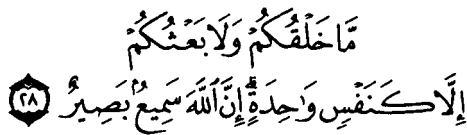 مَّا خَلْقُكُمْ وَلَا بَعْثُكُمْ
إِلَّا كَنَفْسٍ وَٰحِدَةٍ ۗ إِنَّ ٱللَّهَ سَمِيعٌۢ بَصِيرٌ ٢٨